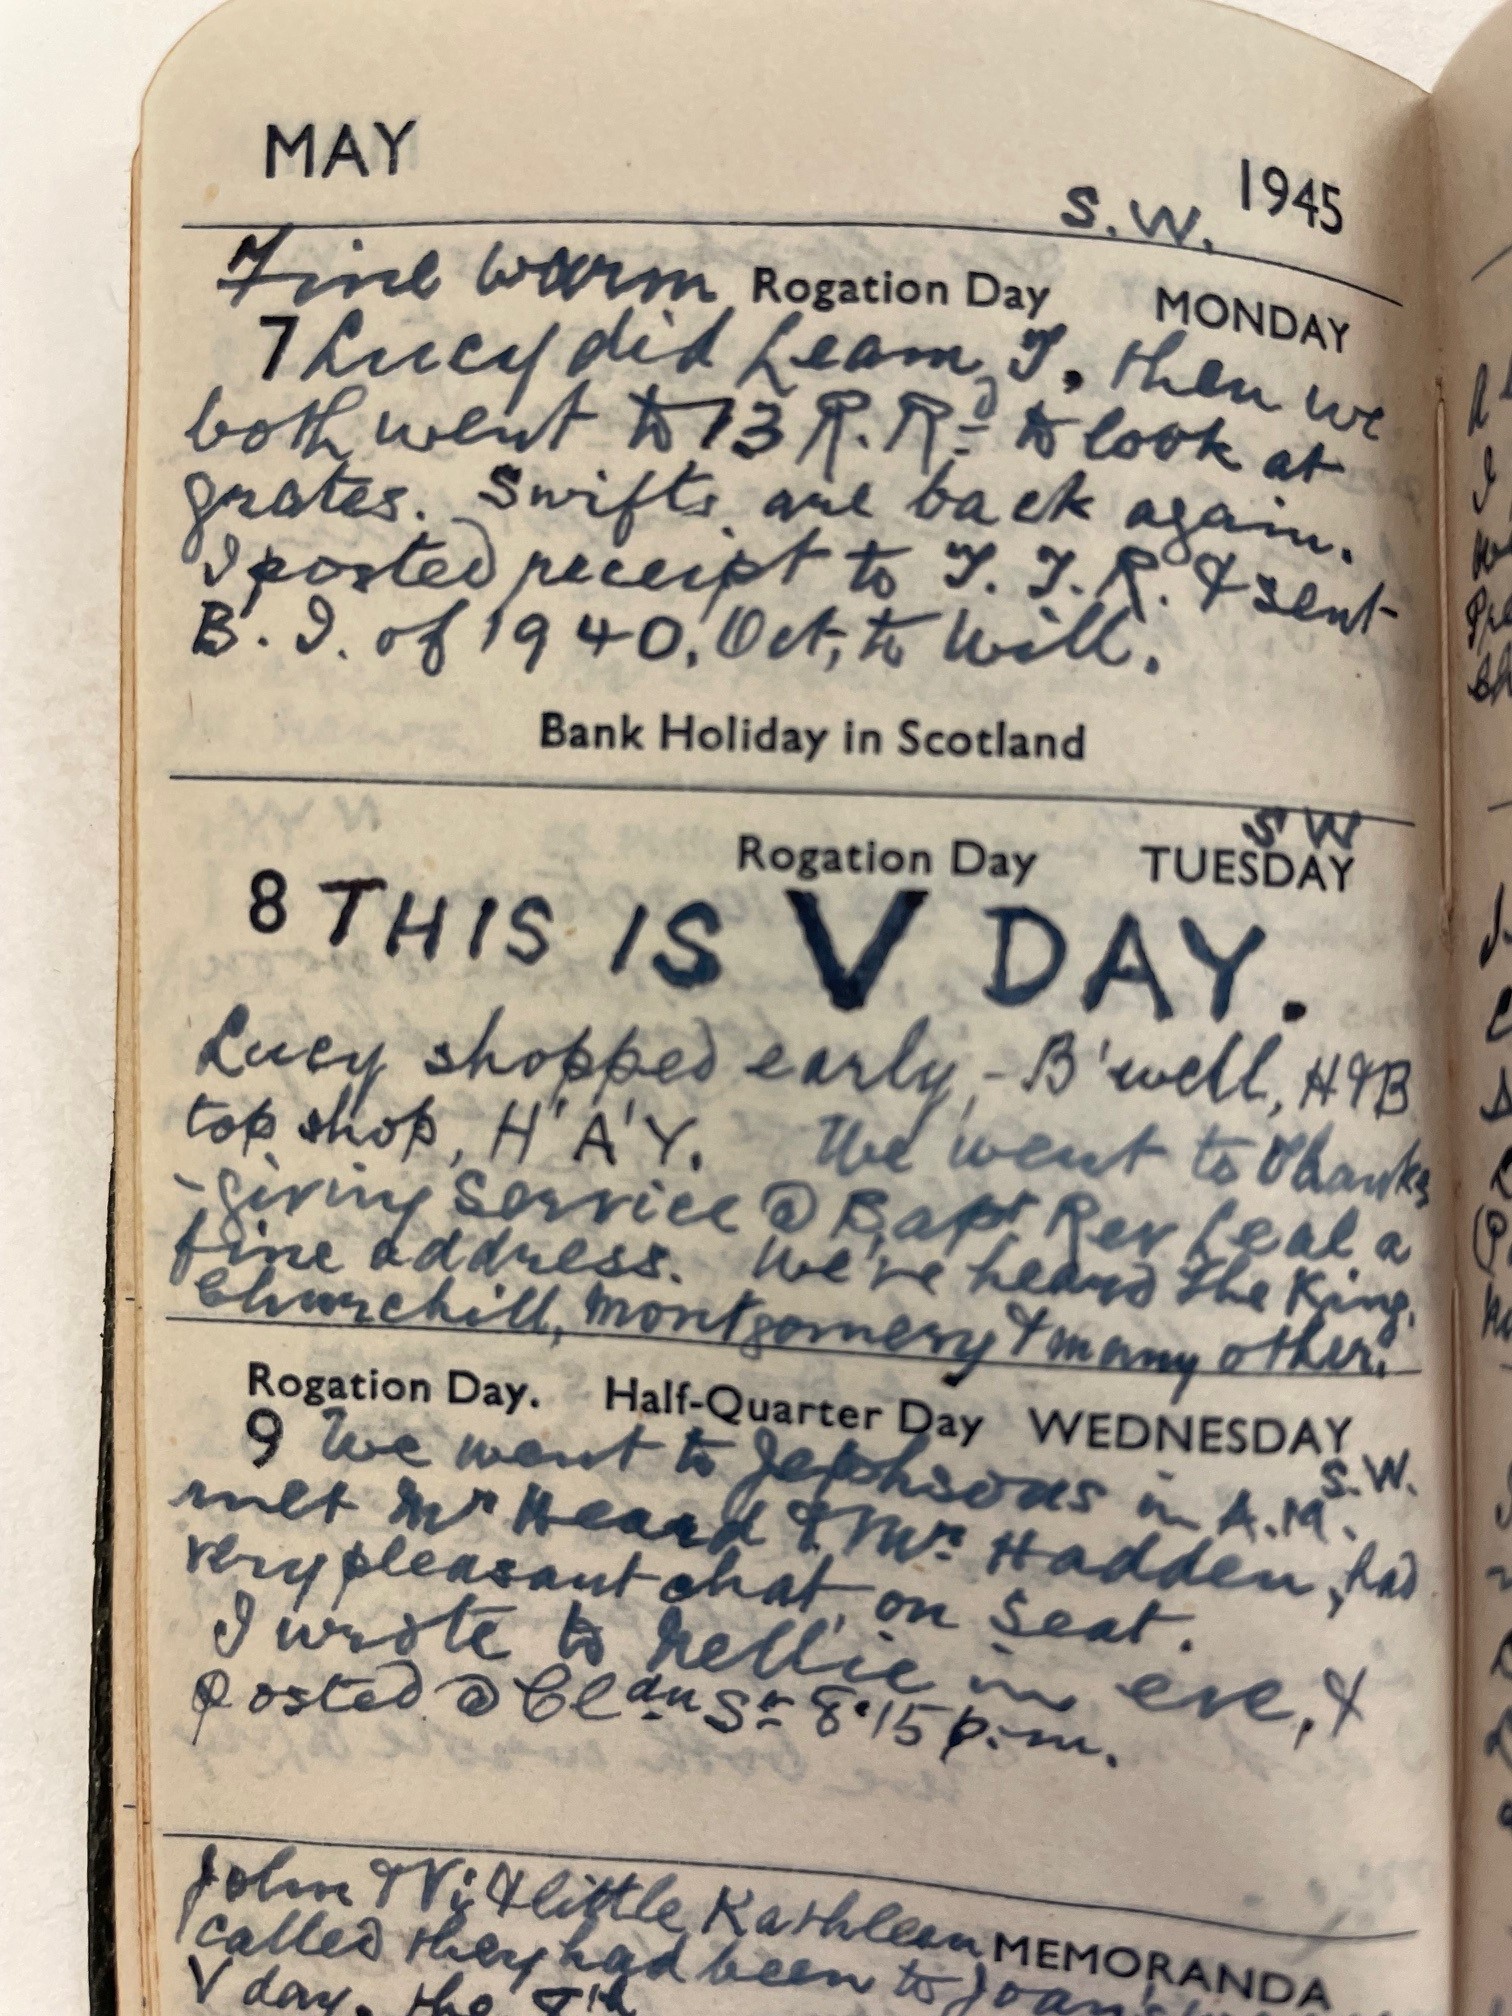 MAY 1945
S.W.
Fine warm Rogation Day MONDAY
7 Lucy did Leam, T, then we
both went to 13 R. Rd to look at
grates. Swifts are back again.
I posted receipt to T. T. R. & sent
B. I. of 1940, Oct, to Will.
Bank Holiday in Scotland
S W
Rogation Day TUESDAY
8 THIS IS V DAY.
Lucy shopped early, - B'well, H&B
top shop, H'A'Y. We went to Thanks
-giving Service @ Bapt Rev Leal a
fine address. We've heard the King,
Churchill, Montgomery & many other.
Rogation Day. Half-Quarter Day WEDNESDAY
9 We went to Jephsons in A.M. S.W.
met Mr Heard & Mrs Hadden, had
very pleasant chat on seat.
I wrote to Nellie in eve, &
Posted @ Cldn Sr 8.15 p.m.
John & Vi & little Kathleen
called they had been to Joan's MEMORANDA
V day, the 8th